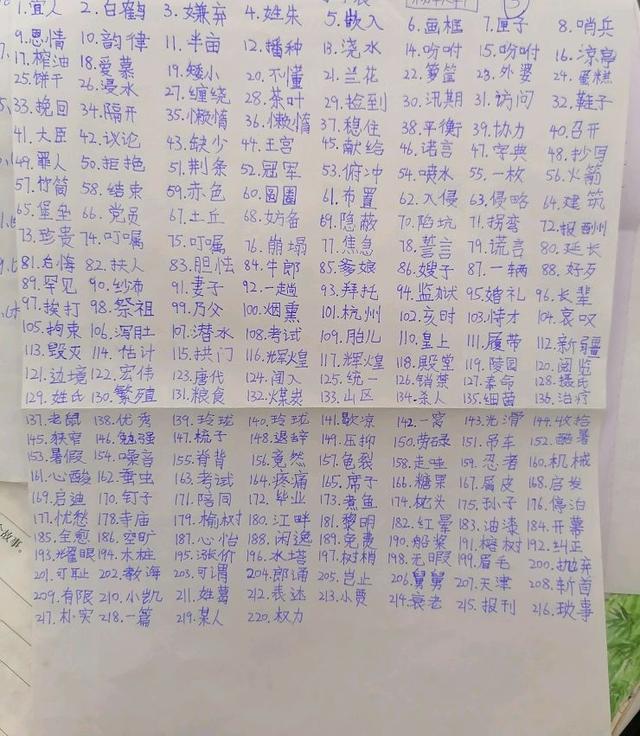 1.宜人 2.白鹤 3.嫌弃 4.姓朱 5.嵌入 6.画框 7.匣子 8.哨兵
9.恩情 10.韵律 11.半亩 12.播种 13.浇水 14.吩咐 15.吩咐 16.凉亭
17.榨油 18.爱慕 19.矮小 20.不懂 21.兰花 22.箩筐 23.外婆 24.蛋糕
25.饼干 26.浸水 27.缠绕 28.茶叶 29.捡到 30.汛期 31.访问 32.鞋子
33.挽回 34.隔开 35.懒惰 36.懒惰 37.稳住 38.平衡 39.协力 40.召开
41.大臣 42.议论 43.缺少 44.王宫 45.献给 46.诺言 47.字典 48.抄写
49.罪人 50.拒绝 51.荆条 52.冠军 53.俯冲 54.喷水 55.一枚 56.火箭
57.竹筒 58.结束 59.赤色 60.圆圈 61.布置 62.入侵 63.侵略 64.建筑
65.堡垒 66.党员 67.土丘 68.妨备 69.隐蔽 70.陷坑 71.拐弯 72.报酬州
73.珍贵 74.叮嘱 75.叮嘱 76.崩塌 77.焦急 78.誓言 79.谎言 80.延长
81.后悔 82.扶人 83.胆怯 84.牛郎 85.爹娘 86.嫂子 87.一辆 88.好歹
89.罕见 90.纱布 91.妻子 92.一趟 93.拜托 94.监狱 95.婚礼 96.长辈
97.挨打 98.祭祖 99.乃父 100.烟熏 101.杭州 102.亥时 103.恃才 104.哀叹
105.拘束 106.泻肚 107.潜水 108.考试 109.胎儿 110.皇上 111.履带 112.新疆
113.毁灭 114.估计 115.拱门 116.辉煌 117.辉煌 118.殿堂 119.陵园 120.阅览
121.边境 122.宏伟 123.唐代 124.闯入 125.统一 126.销禁 127.奉命 128.聂氏
129.姓氏 130.繁殖 131.粮食 132.煤炭 133.山区 134.杀人 135.细菌 136.治疗
137.老鼠 138.优秀 139.玲珑 140.玲珑 141.歇凉 142.一窝 143.光滑 144.收拾
145.狭窄 146.勉强 147.梳子 148.退辞 149.压抑 150.劳碌 151.吊车 152.酷暑
153.暑假 154.噪音 155.脊背 156.竟然 157.龟裂 158.走哇 159.忍者 160.机械
161.心酸 162.害虫 163.考试 164.疼痛 165.席子 166.糖果 167.屑皮 168.启发
169.启迪 170.钉子 171.陪同 172.毕业 173.煮鱼 174.枕头 175.孙子 176.停泊
177.忧愁 178.寺庙 179.榆树 180.江畔 181.黎明 182.红晕 183.油漆 184.开幕
185.全愈 186.空旷 187.心怡 188.闲逸 189.免费 190.船桨 191.榕树 192.纠正
193.耀眼 194.木桩 195.涨价 196.水塔 197.树梢 198.无暇 199.眉毛 200.抛弃
201.可耻 202.教诲 203.可谓 204.郎诵 205.岂止 206.舅舅 207.天津 208.斩首
209.有限 210.小凯 211.姓葛 212.表述 213.小贾 214.衰老 215.报刊 216.琐事
217.朴实 218.一篇 219.某人 220.权力
故事。